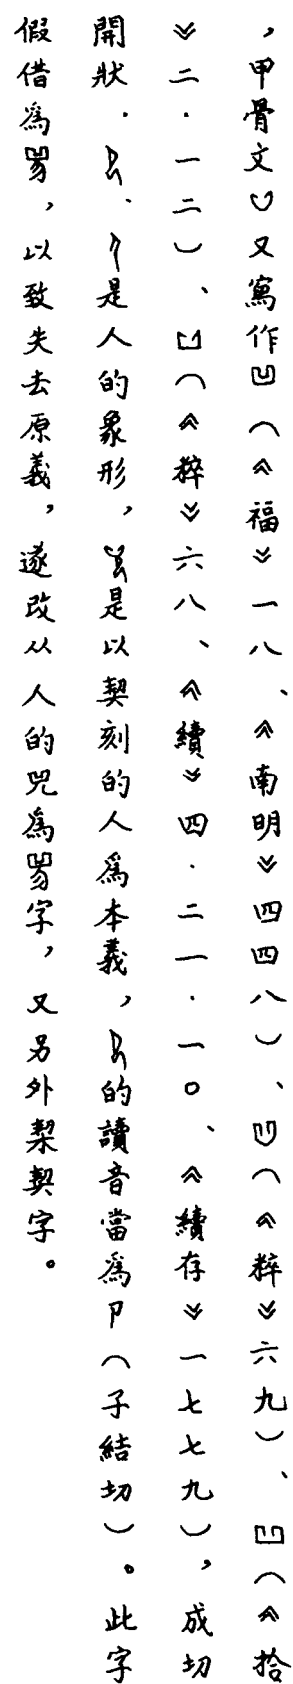 ，甲骨文又寫作（《福》一八、《南明》四四八）、（《粹》六九）、（《拾
》二．一二）、（《粹》六八、《續》四．二一．一〇、《續存》一七七九），成切
開狀．、是人的象形，是以契刻的人爲本義，的讀音當爲卩（子結切）。此字
假借爲，以致失去原義，遂改从人的兕爲字，又另外栔契字。